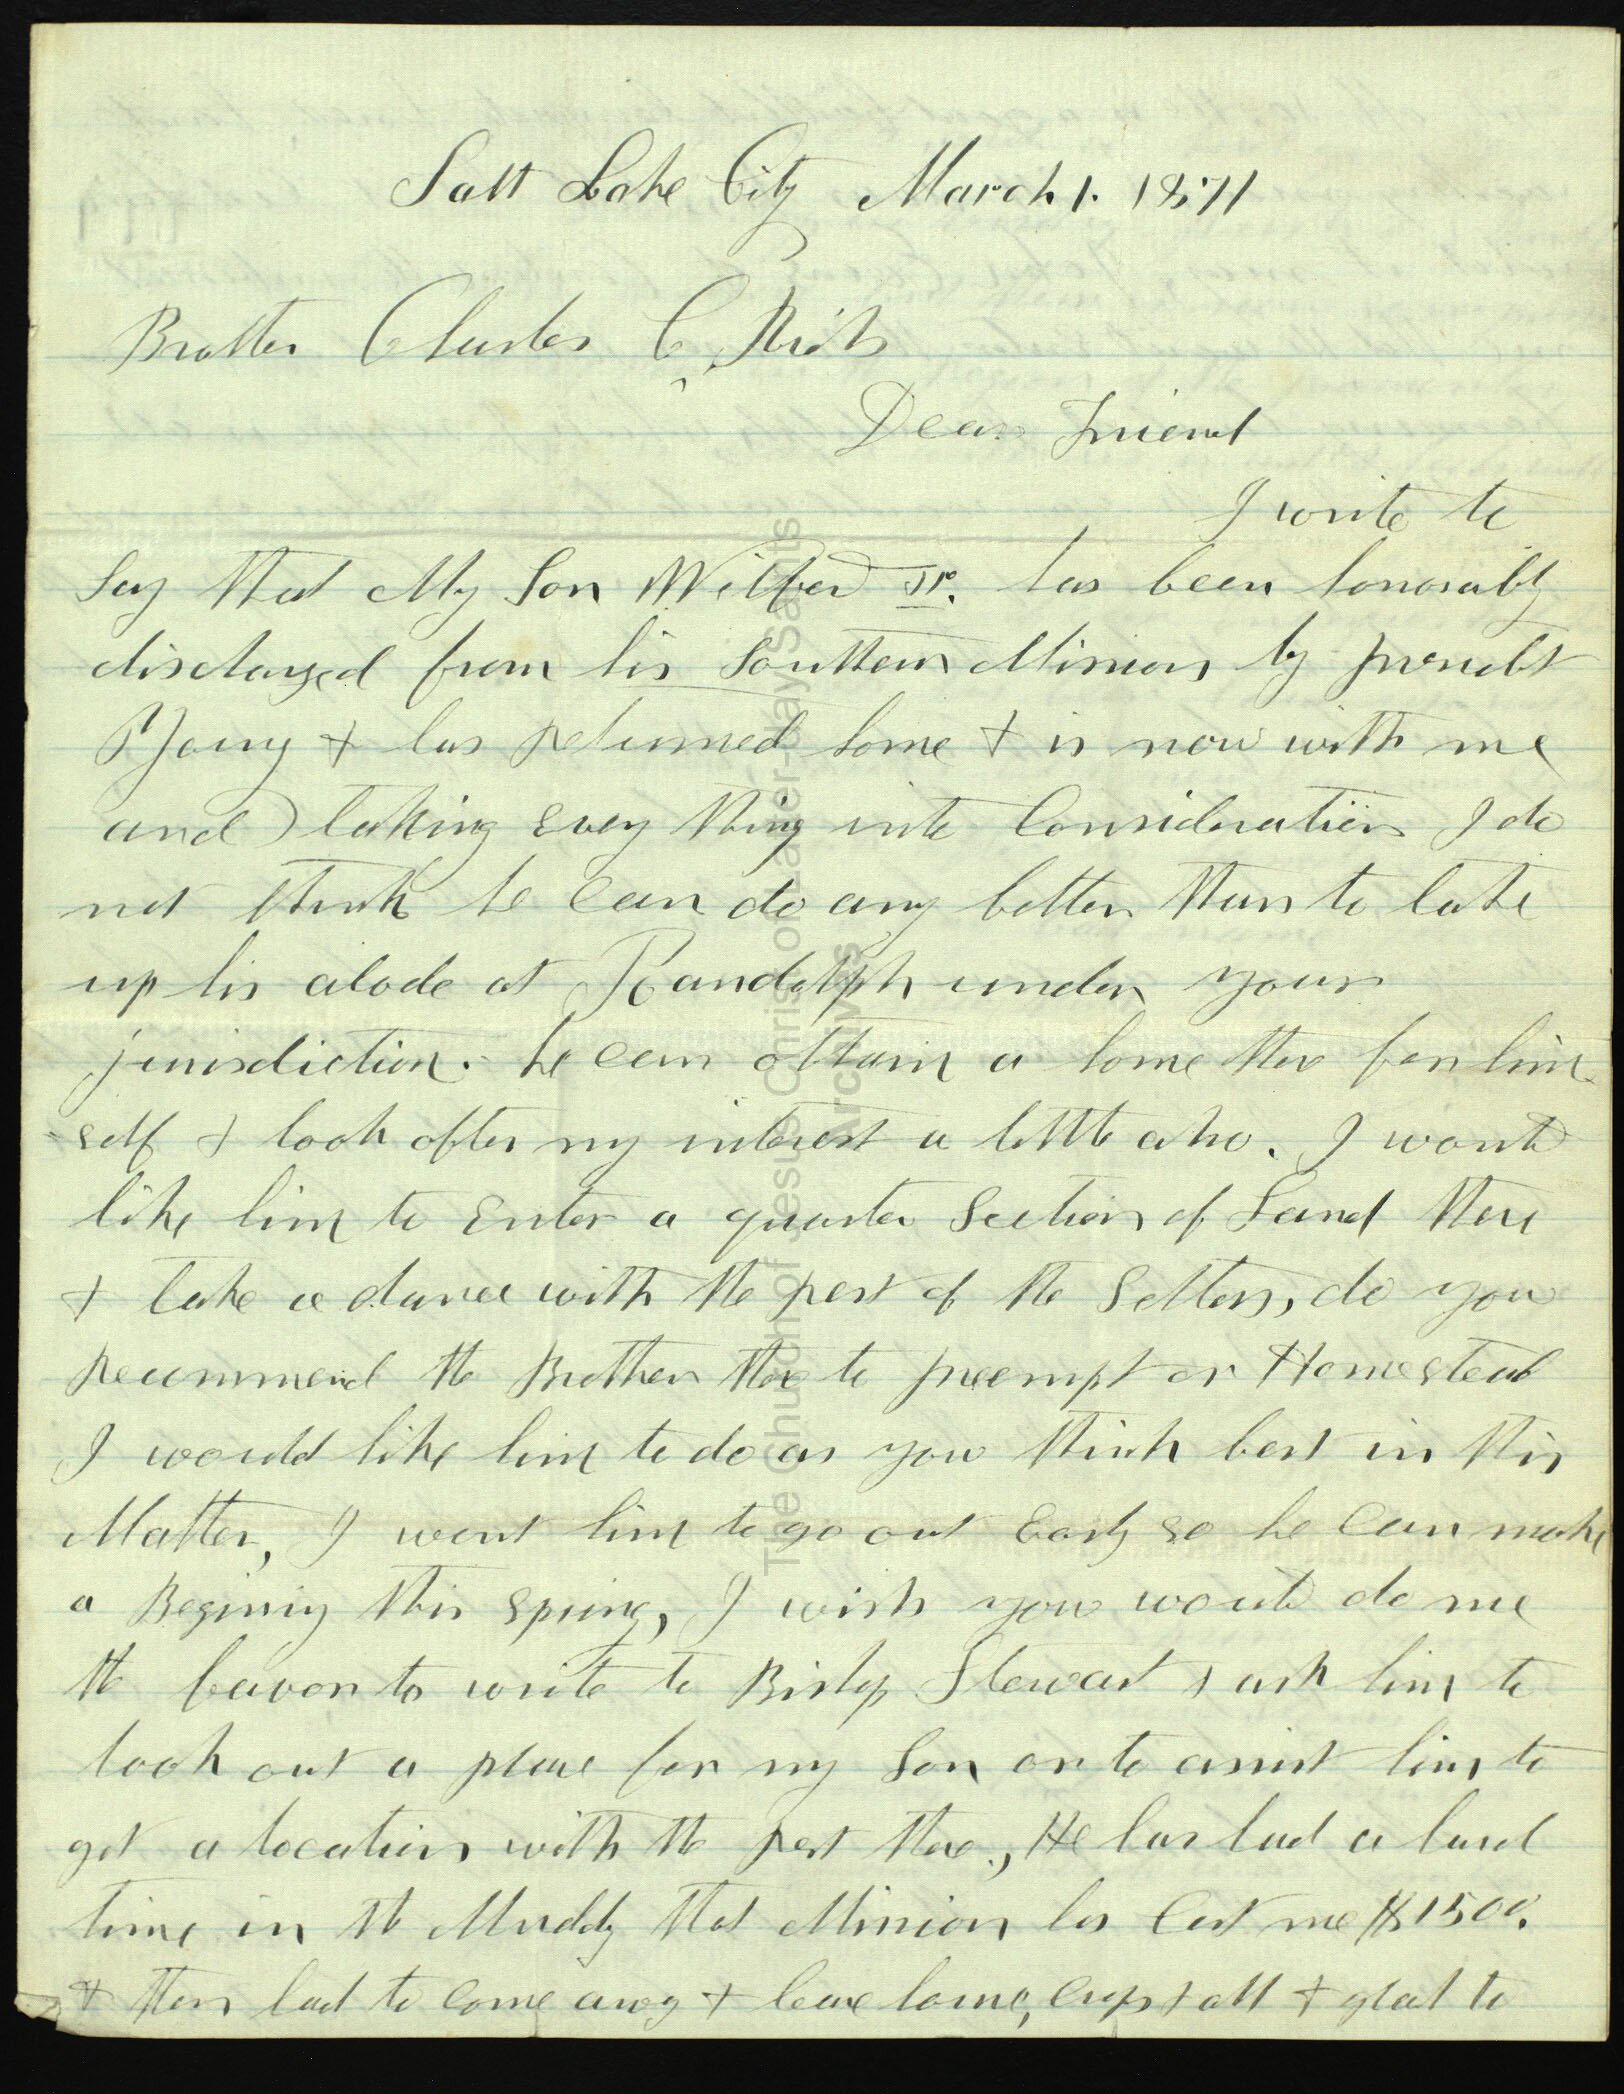 Salt Lake City March 1. 1871
Brother Charles C. Rich
Dear Friend
I write to
Say that My Son Wilford Jr. has been honorably
discharged from his Southern Mission by presidet
Young & has returned home & is now with me
and taking every thing into Consideration I do
not think he can do any better than to take
up his abode at Randolph under your
jurisdiction. he can obtain a home thare for him
self & look after my interest a little also. I would
like him to Enter a quarter Section of Land there
& take a chance with the rest of the Settlers, do you
recommend the Brethren thare to preempt or Homestead
I would like him to do as you think best in this
Matter, I want him to go out Early so he can make
a Begining this spring, I wish you would do me
the favor to write to Bishop Stewart & ask him to
look out a place for my Son or to assist him to
get a location with the rest thare., He has had a hard
time in the Muddy that Mission has Cost me $1500.
& then had to Come away & leave home, Crops & all & glad to
The Church of Jesus Christ of Latter-day Saints
Archives